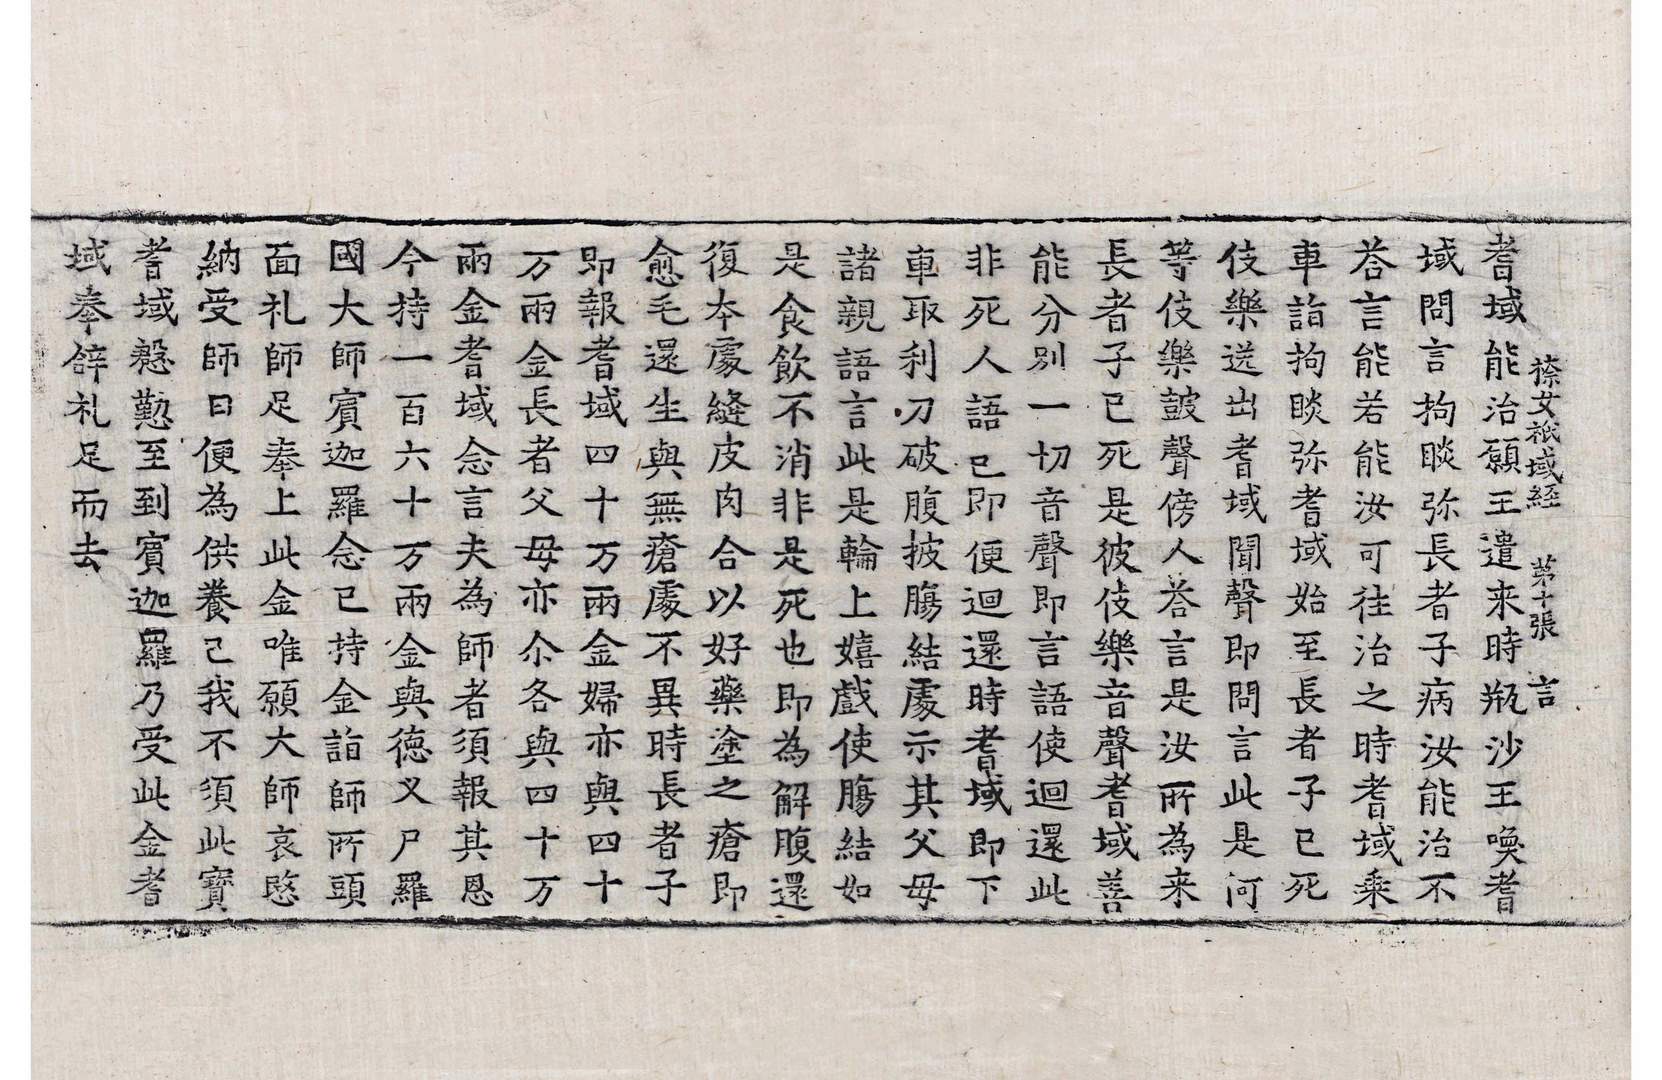 㮈女祇域経 第十張 言
耆域能治願王遣来時瓶沙王喚耆
域問言拘睒弥長者子病汝能治不
荅言能若能汝可往治之時耆域乗
車詣拘睒弥耆域始至長者子已死
伎樂送出耆域聞聲即問言此是何
等伎樂鼓聲傍人荅言是汝所為来
長者子已死是彼伎樂音聲耆域善
能分別一切音聲即言語使迴還此
非死人語已即便迴還時耆域即下
車取利刀破腹披膓結處示其父母
諸親語言此是輪上嬉戲使膓結如
是食飲不消非是死也即為解腹還
復本處縫皮肉合以好藥塗之瘡即
愈毛還生與無瘡處不異時長者子
即報耆域四十万兩金婦亦與四十
万兩金長者父母亦尒各與四十万
兩金耆域念言夫為師者須報其恩
今持一百六十万兩金與德叉尸羅
國大師賓迦羅念已持金詣師所頭
面礼師足奉上此金唯願大師哀愍
納受師曰便為供養已我不須此寶
耆域慇懃至到賓迦羅乃受此金耆
域奉辤礼足而去